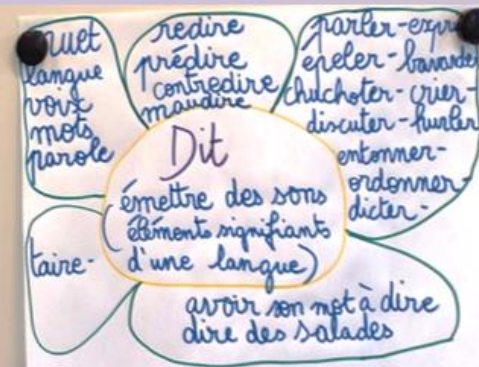 muet
langue
voix
mots
parole
redire
prédire
contredire
maudire
parler-expr
épeler-bavarde
chuchoter-crier-
discuter-hurler
entonner-
ordonner-
dicter-
Dit
émettre des sons
(éléments signifiants
d'une langue)
taire-
avoir son mot à dire
dire des salades